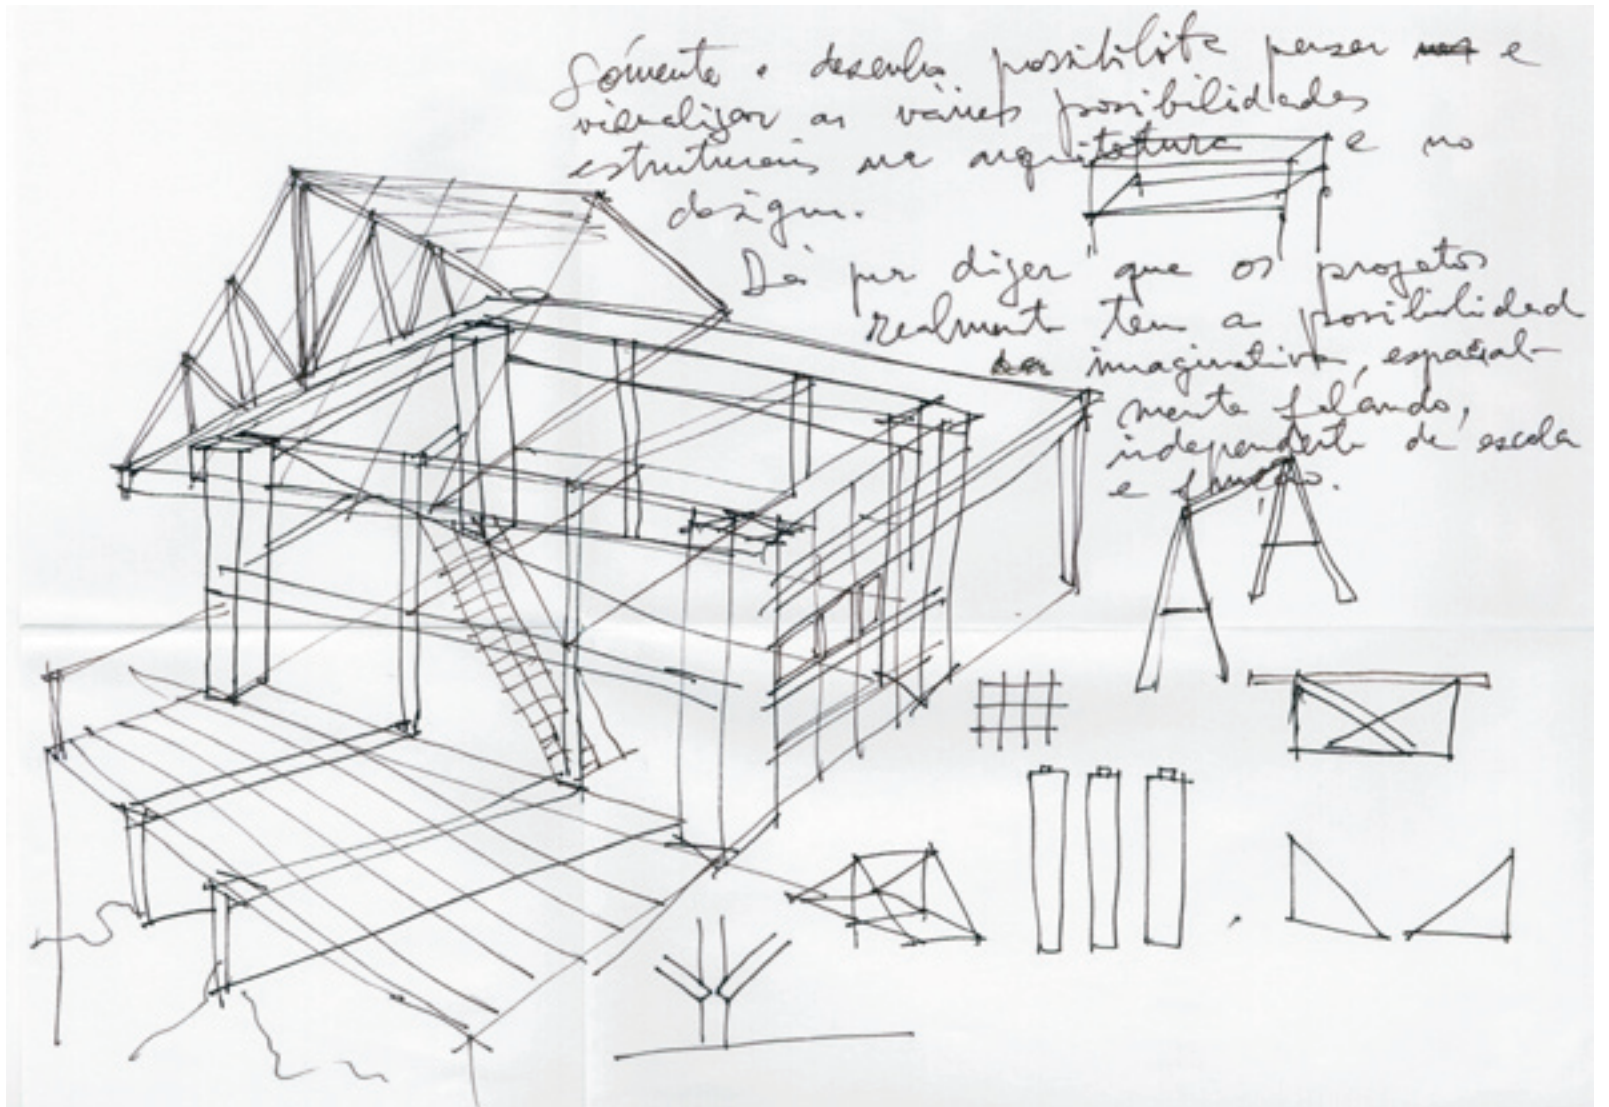 Sómente o desenho possibilita pensar e
visualizar as várias possibilidades
estruturais na arquitetura e no
design.
Dá pur dizer que os projetos
realmente tem a possibilidad
imaginativa, espacial-
mente falando,
independente de escala
e função.